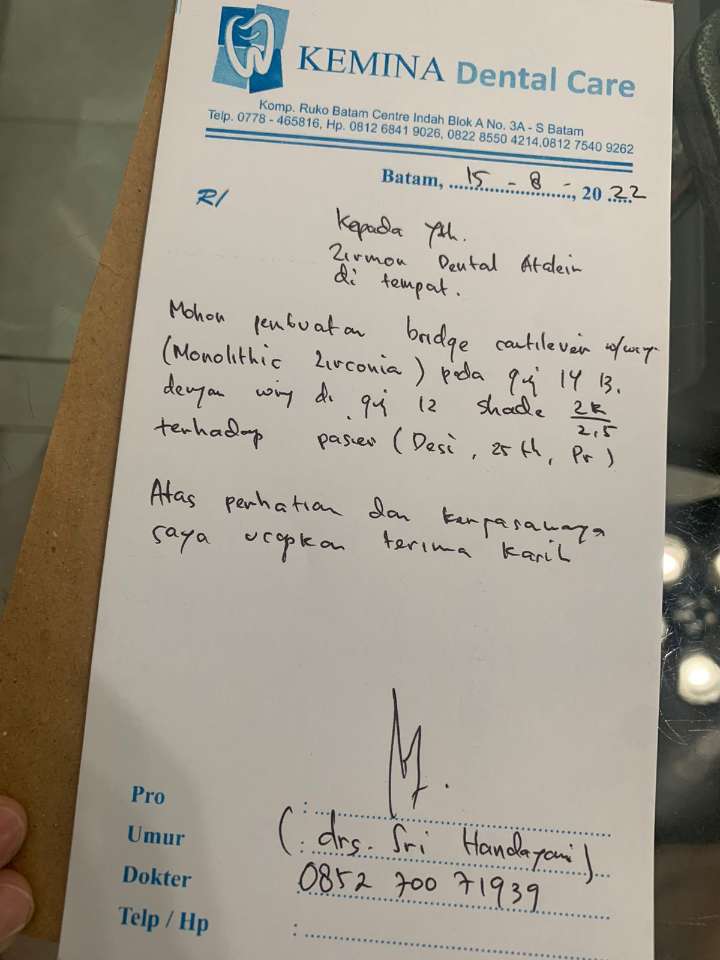 KEMINA Dental Care
Komp. Ruko Batam Centre Indah Blok A No. 3A - S Batam
Telp. 0778 - 465816, Hp. 0812 6841 9026, 0822 8550 4214,0812 7540 9262
Batam, 15 - 8 - , 20 22
R/
Kepada Yth.
Zirmon Dental
di tempat.
Mohon penbuatan bridge cantilever
(Monolithic Zirconia) pada gigi 14 13.
dengan wing di gigi 12 shade 2R/2,5
terhadap pasien (Desi, 25 th, Pr)
Atas perhatian dan
saya ucapkan terima kasih
Pro :
Umur (drs. Sri Handayani)
Dokter 0852 700 71939
Telp / Hp :